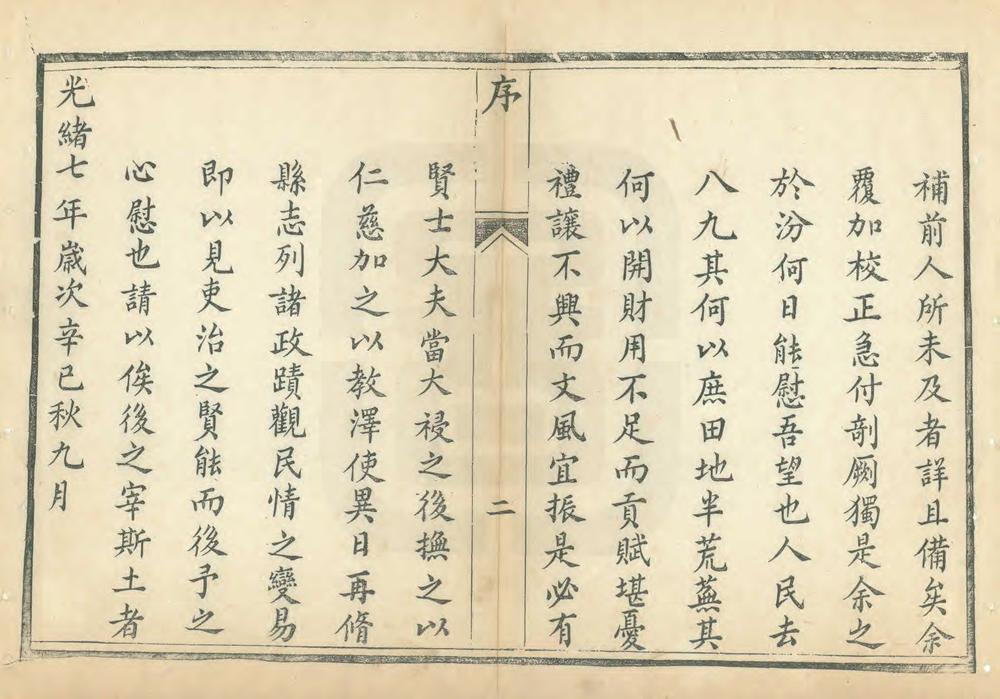 補前人所未及者詳且備矣余
覆加校正急付剞劂獨是余之
於汾何日能慰吾望也人民去
八九其何以庶田地半荒蕪其
何以開財用不足而貢賦堪憂
禮讓不興而文風宜振是必有
序
二
賢士大夫當大祲之後撫之以
仁慈加之以教澤使異日再脩
縣志列諸政蹟觀民情之變易
即以見吏治之賢能而後予之
心慰也請以俟後之宰斯土者
光緒七年歲次辛巳秋九月